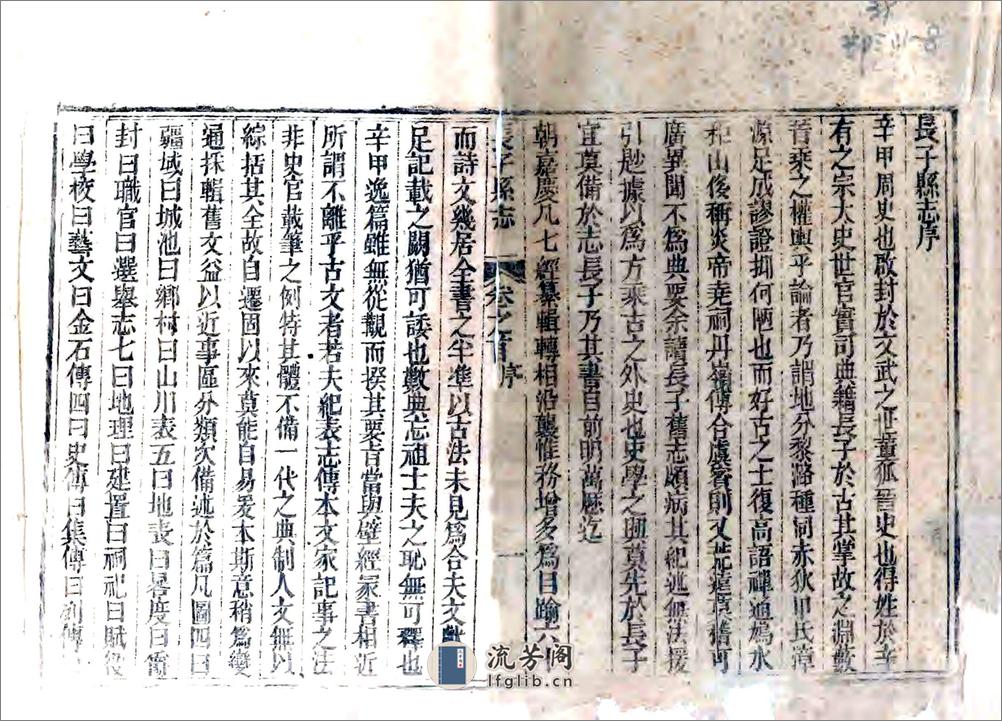 長子縣志序
辛甲周史也啟封於文武之世董狐晉史也得姓於辛
有之宗大史世官實司典籍長子於古其掌故之淵藪
晉乘之權輿乎論者乃謂地分黎潞種洞赤狄甲氏漳
源足成謬證抑何陋也而好古之士復高語禪通鳩水
和山侈稱炎帝堯祠丹嶺傅合虞賓則又茫遠廣稽可
廣異聞不為典要余讀長子舊志頗病其紀述無法援
引尠據以為方乘古之外史也史學之興莫先於長子
宜莫備於志長子乃其書自前明萬歷迄
朝嘉慶凡七經纂輯轉相沿襲惟務增多為目踰六十
長子縣志 卷之首 序 一
而詩文幾居全書之半準以古法未見為合夫文
足記載之闕猶可諉也數典忘祖士夫之恥無可釋也
辛甲逸篇雖無從觀而揆其要旨當與壁經冢書相近
所謂不離乎古文者若夫紀表志傳本文家記事之法
非史官載筆之例特其體不備一代之典制人文無以
綜括其全故自遷固以來莫能自易爰本斯意稍為變
通採輯舊文益以近事區分類次備述於篇凡圖四曰
疆域曰城池曰鄉村曰山川表五曰地表曰晷度曰
封曰職官曰選舉志七曰地理曰建置曰祠祀曰賦役
曰學校曰藝文曰金石傳四曰史傳曰集傳曰列傳
流芳阁
lfglib.cn